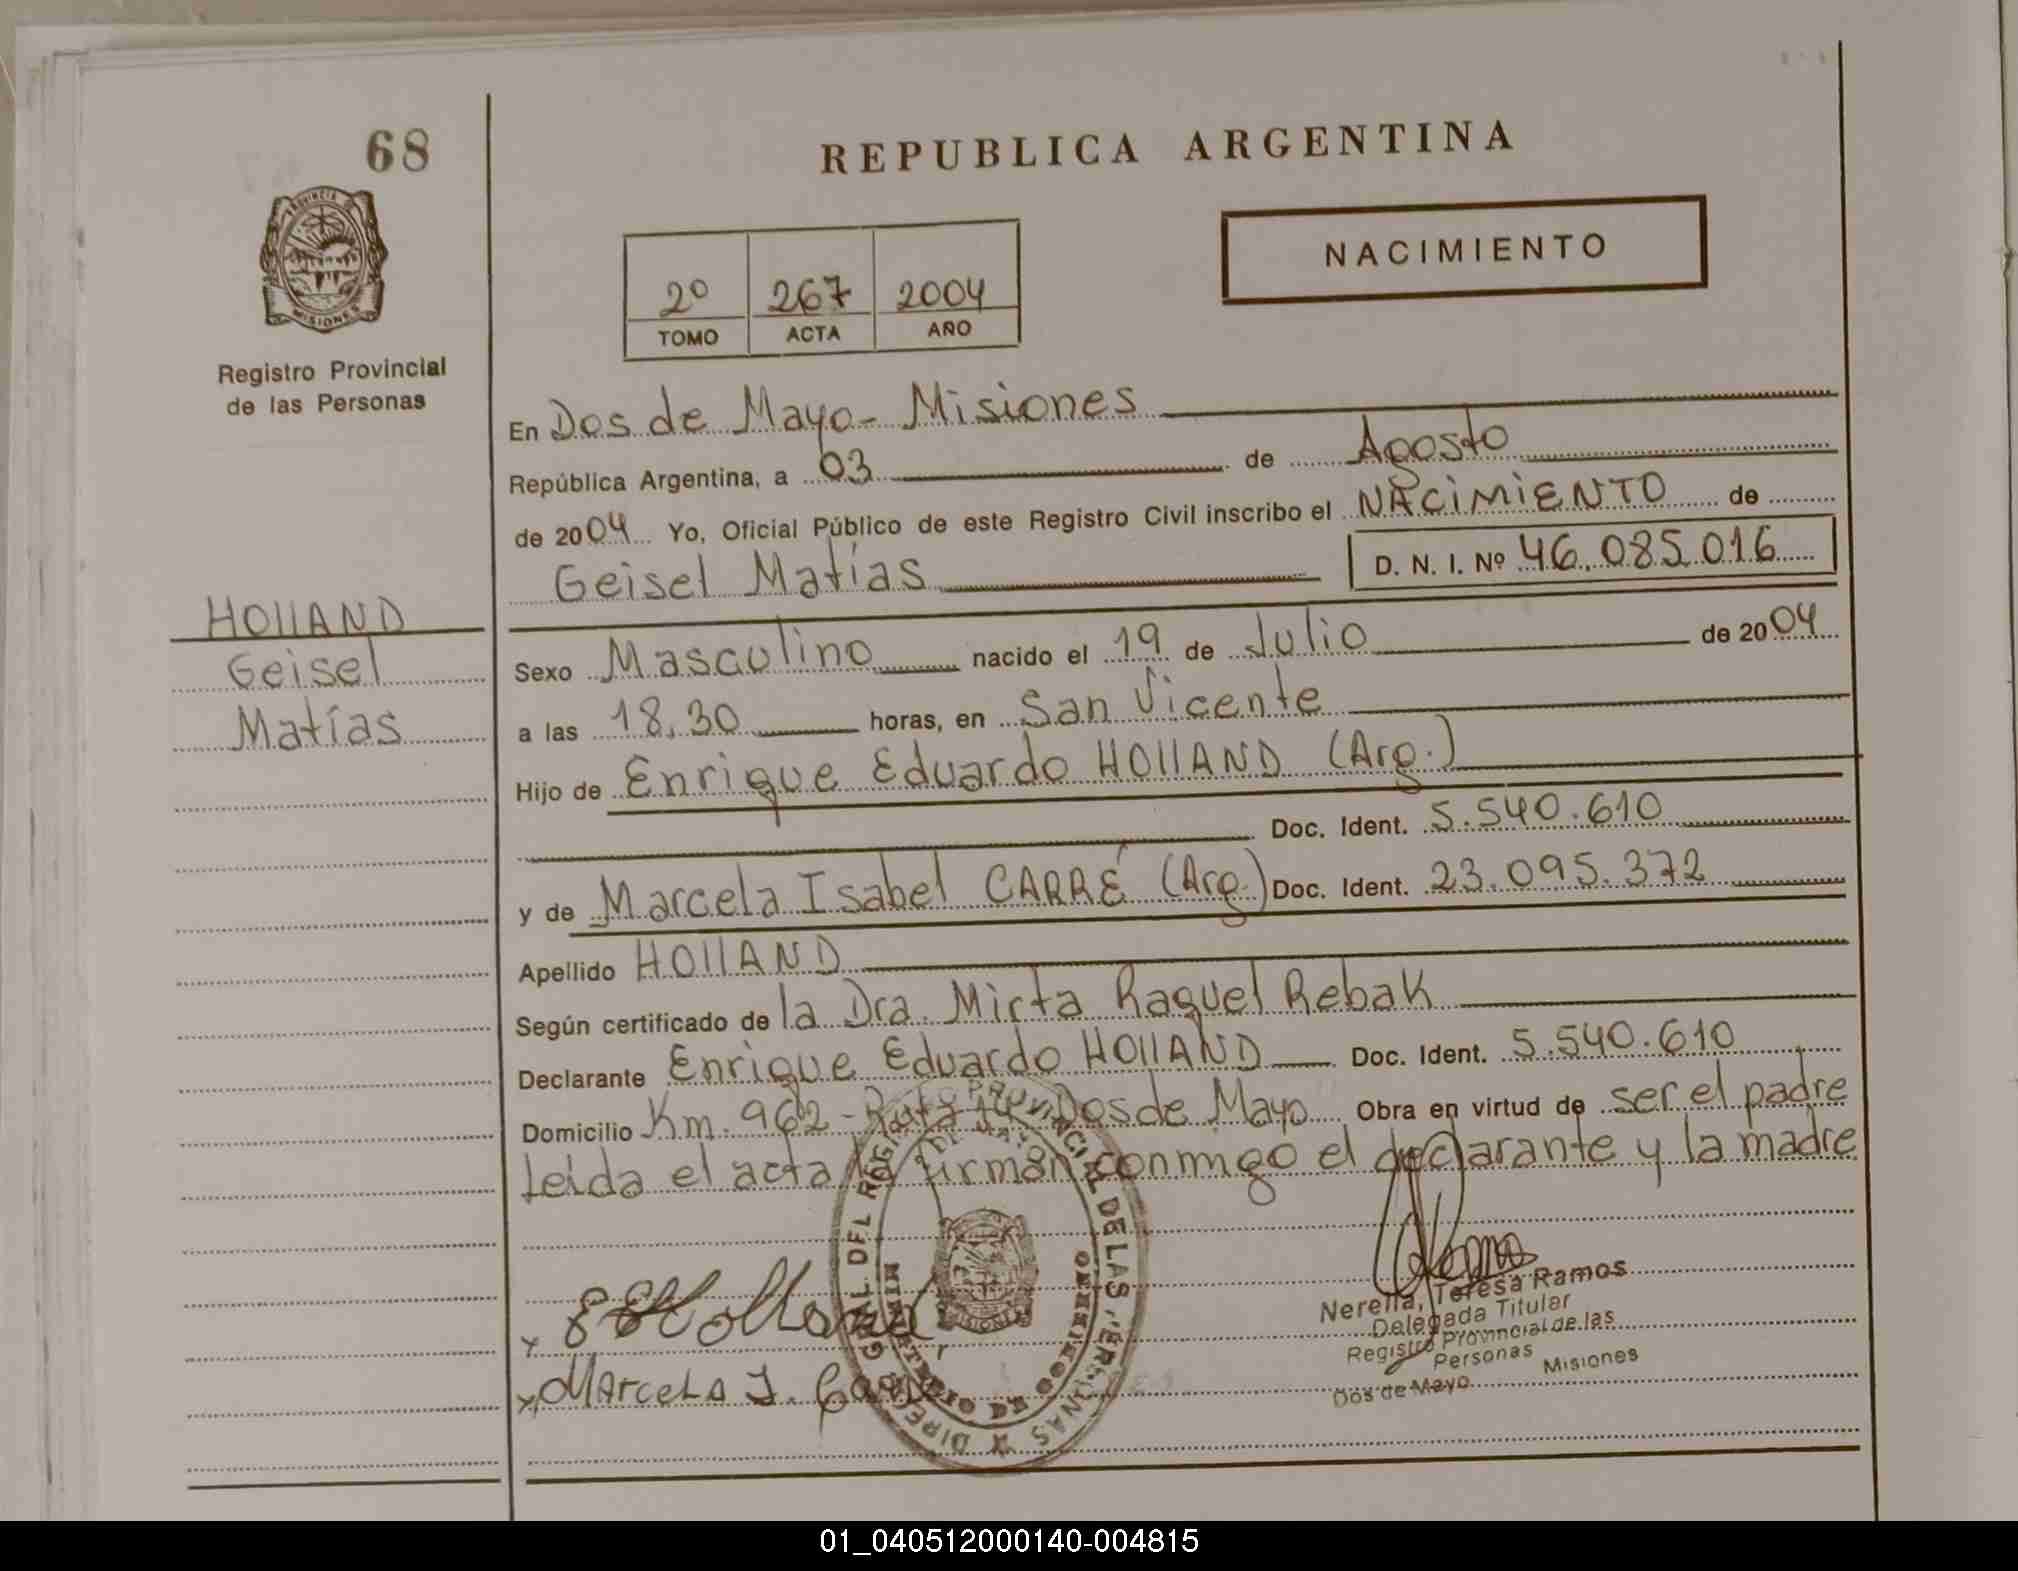 68
REPUBLICA ARGENTINA
PROVINCIA DE
MISIONES
Registro Provincial
de las Personas
2º 267 2004
TOMO ACTA AÑO
NACIMIENTO
En Dos de Mayo - Misiones
República Argentina, a 03 de Agosto
de 2004 Yo, Oficial Público de este Registro Civil inscribo el NACIMIENTO de
Geisel Matías D. N. I. Nº 46.085.016
HOLLAND
Geisel
Matías
Sexo Masculino nacido el 19 de Julio de 2004
a las 18,30 horas, en San Vicente
Hijo de Enrique Eduardo HOLLAND (Arg.)
Doc. Ident. 5.540.610
y de Marcela Isabel CARRÉ (Arg.) Doc. Ident. 23.095.372
Apellido HOLLAND
Según certificado de la Dra. Mirta Raquel Rebak
Declarante Enrique Eduardo HOLLAND Doc. Ident. 5.540.610
Domicilio Km. 962 - Ruta 14 Dos de Mayo Obra en virtud de ser el padre
Leida el acta la firman conmigo el declarante y la madre
EEHolland
Marcela I. Carré
MISIONES
MINISTERIO DE GOBIERNO
Nerella, Teresa Ramos
Delegada Titular
Registro Provincial de las
Personas
Dos de Mayo Misiones
01_040512000140-004815